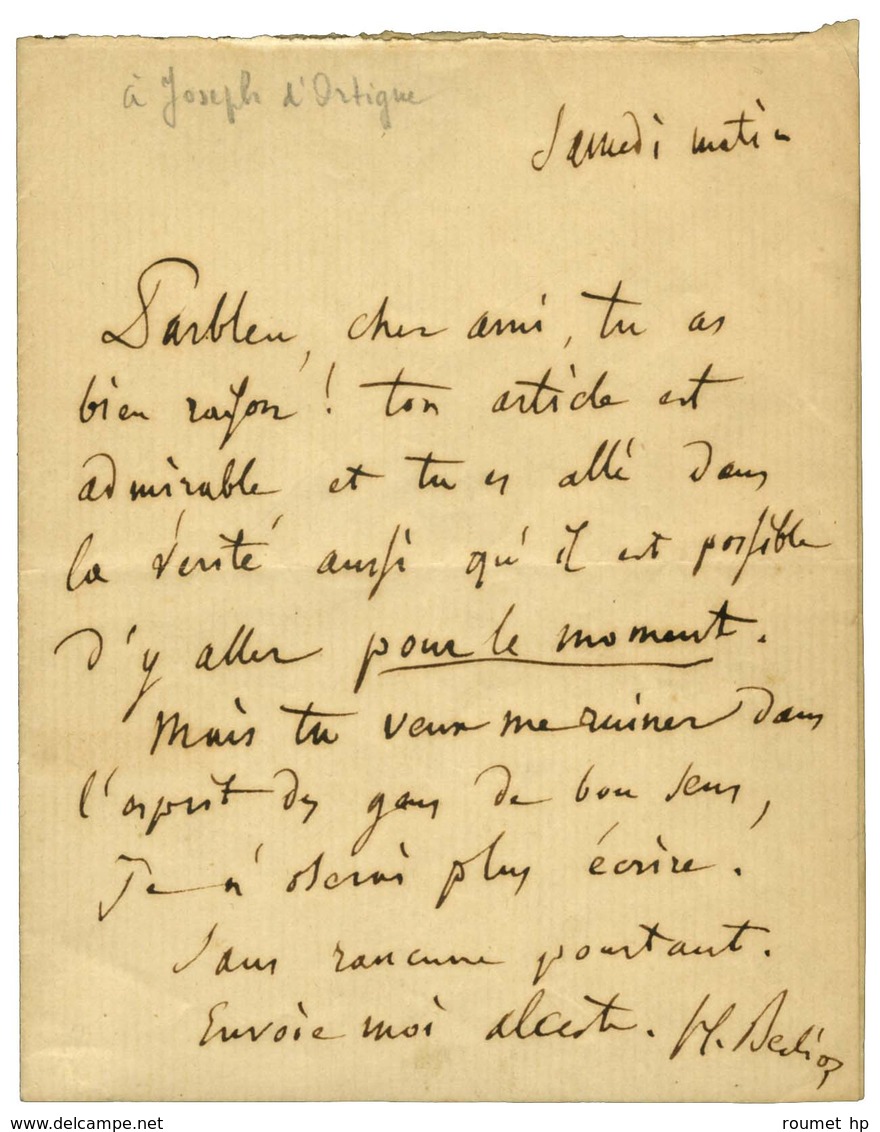 à Joseph d'Ortigue
Samedi matin
Parbleu, cher ami, tu as
bien raison ! ton article est
admirable et tu es allé dans
la vérité aussi qu'il est possible
d'y aller pour le moment.
Mais tu veux me ruiner dans
l'esprit des gens de bon sens,
Je n'oserai plus écrire.
Sans rancune pourtant.
Envoie moi alceste. H. Berlioz
roumet hp